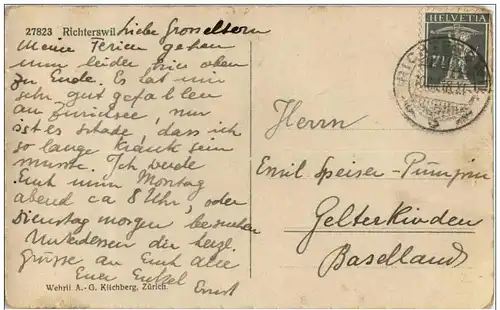 27823 Richterswil
Liebe Grosseltern
Meine Ferien gehen
nun leider hier oben
zu Ende. Es hat mir
sehr gut gefallen
am Zürichsee, nur
ist es schade, dass ich
so lange krank sein
musste. Ich werde
Euch nun Montag
abend ca 8 Uhr, oder
Dienstag morgen besuchen
Unterdessen die herzl.
Grüsse an Euch alle
Euer Enkel
Ernst
Wehrli A.-G. Kilchberg, Zürich.
HELVETIA
Herrn
Emil Speiser-Pümpin
Gelterkinden
Baselland